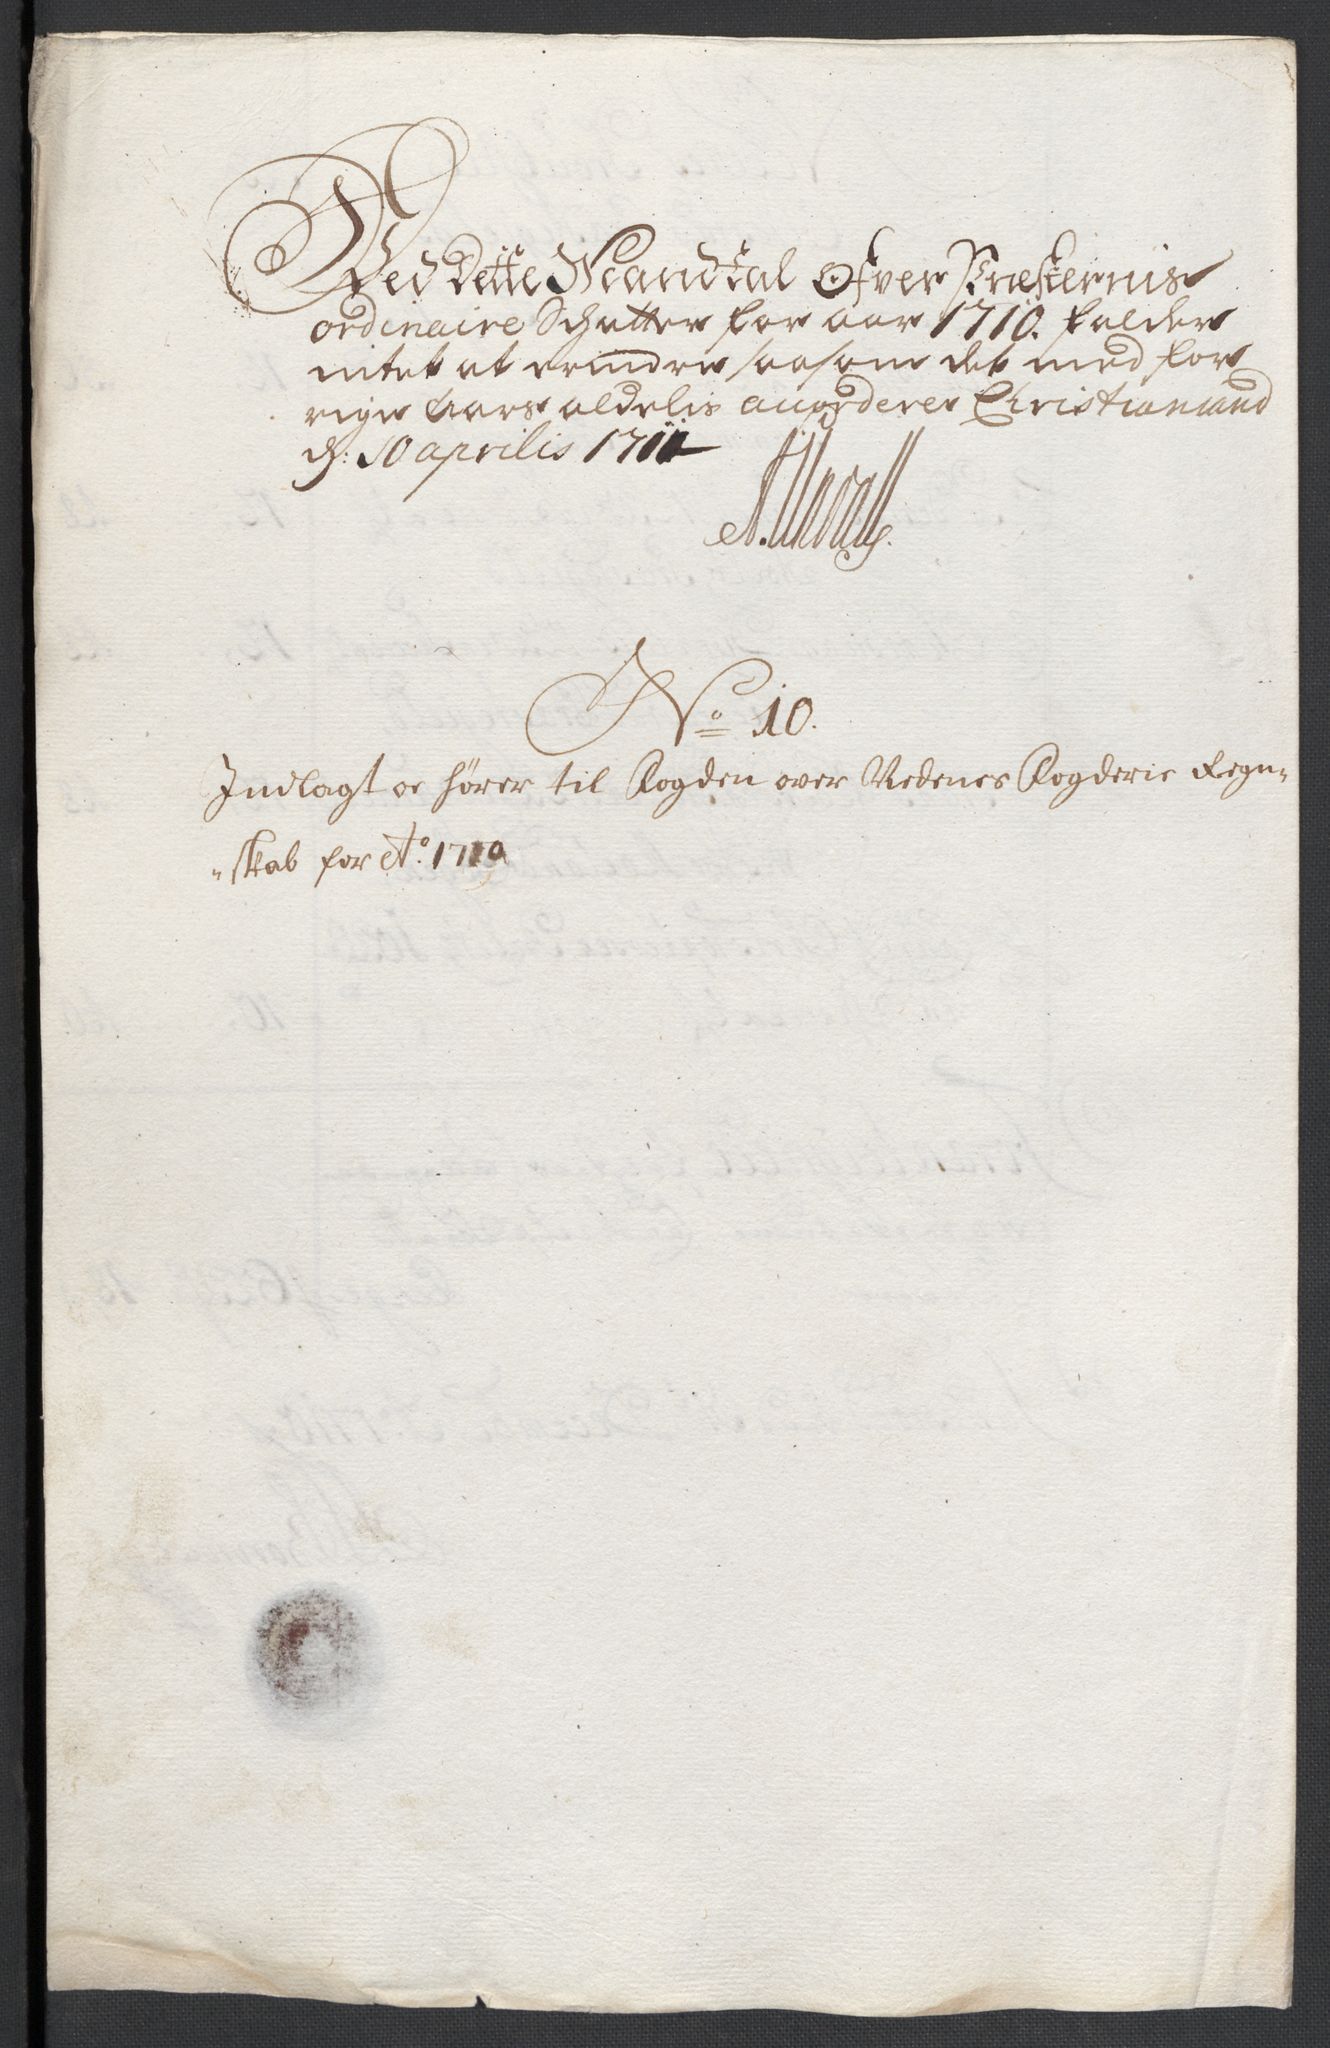 Ved dette Mandtal ofver Præsternis
ordinaire Schatter for aar 1710. falder
intet at erindre saasom det med for
rige Aars aldelis accorderer Christiansand
d: 10 aprilis 1711
No 10.
Indlagt oc hører til Fogden over Nedenes Fogderie Regn-
-skab for Ao. 1710